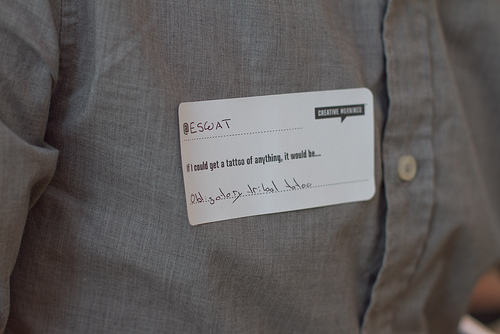 @ESWAT
CREATIVE MORNINGS
If I could get a tattoo of anything, it would be...
Obligatory tribal tatoo